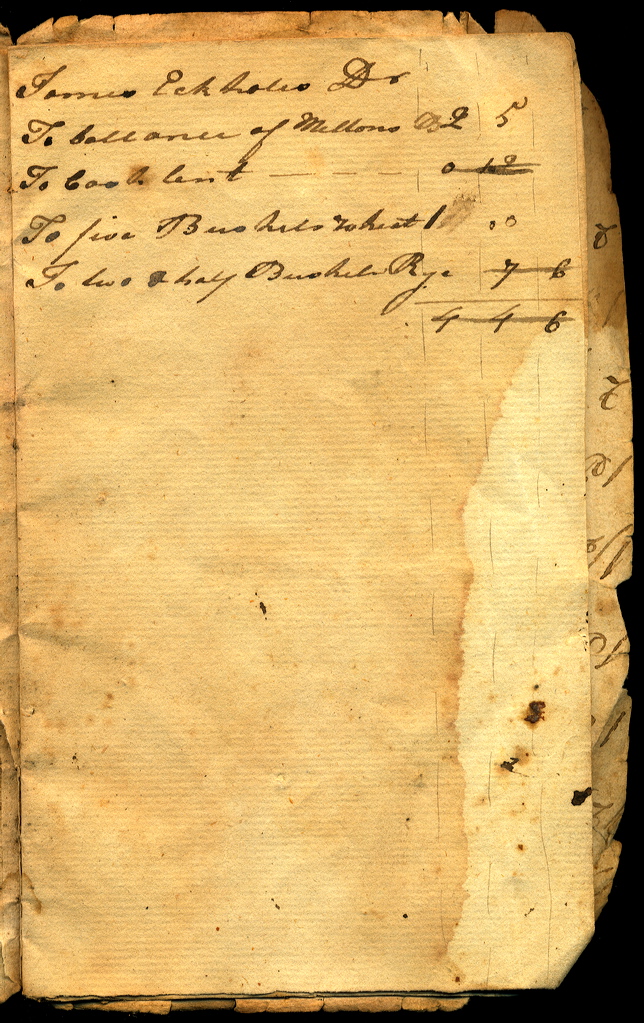 James Eckholes Dr
To ballance of Mellons 2 5
To Cash lent — — — — 0 12
To five Bushels wheat 1 00
To two & half Bushels Rye 7 6
4 4 6